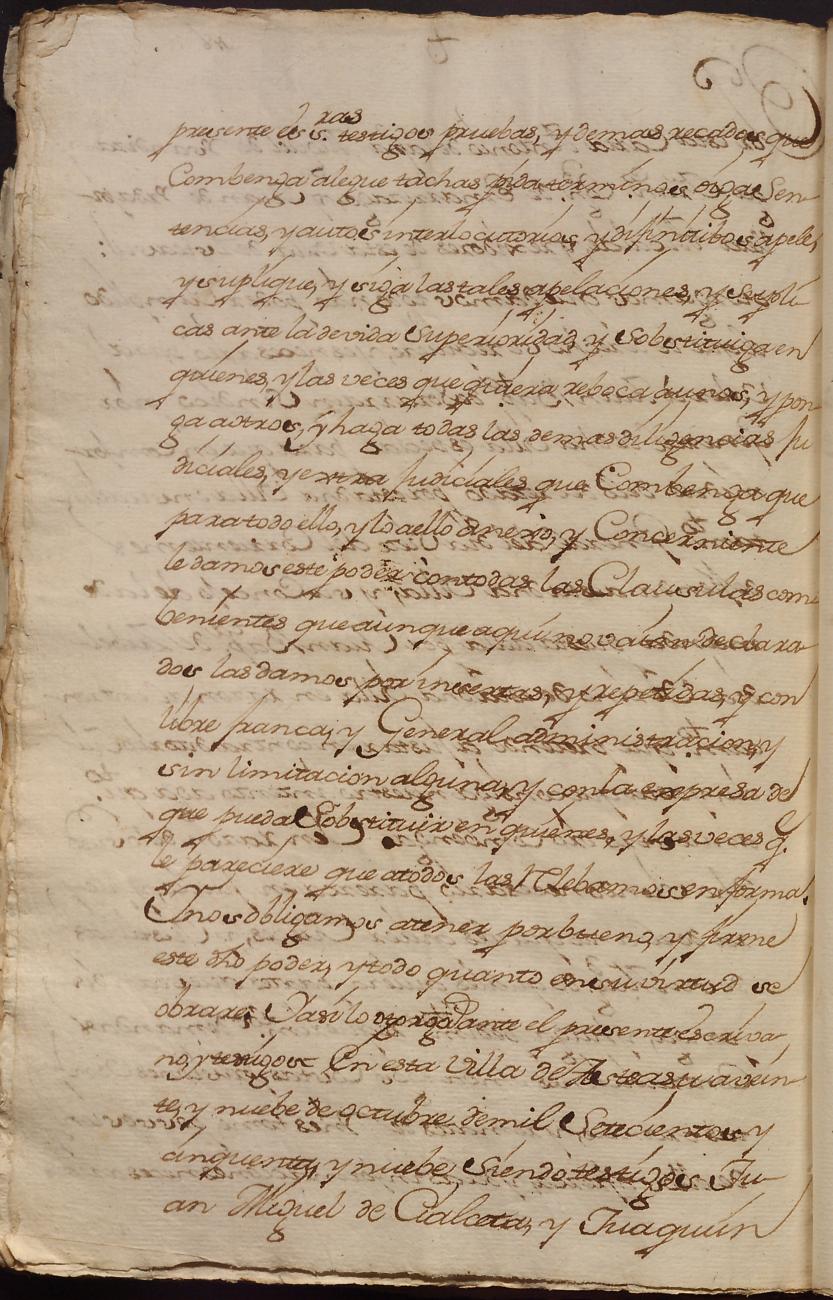 presente es.ras testigos pruebas, y demas recados que
Combenga alegue tachas pida terminos oiga Sen-
tencias, y autos interlocutorios y difinitibos apele,
y suplique, y siga las tales apelaciones, y Supli-
cas ante la devida Superioridad, y Sobstituiga en
quienes, y las veces que quiera reboca a unos, y pon-
ga a otros, y haga todas las demas diligencias Ju-
diciales, y extra Judiciales que Combenga que
para todo ello, y lo a ello anejo, y Concerniente
le damos este poder con todas las Clausulas com-
benientes que aunque aqui no vaian declara-
dos las damos por incertas, y repetidas, y con
libre franca, y General administracion, y
sin limitacion alguna, y con la expresa de
que pueda Sobstituir en quienes, y las veces q.
le pareciere que a todos las Relebamos en forma.
Y nos obligamos a tener por bueno, y firme
este dho poder, y todo quanto en su virtud se
obrare Y asi lo otorga ante el presente escriva-
no, y testigos En esta Villa de Asteasu a vein-
te, y nuebe de octubre de mil Setecientos y
cinquenta, y nuebe, Siendo testigos Ju-
an Miguel de Cialceta, y Juaquin